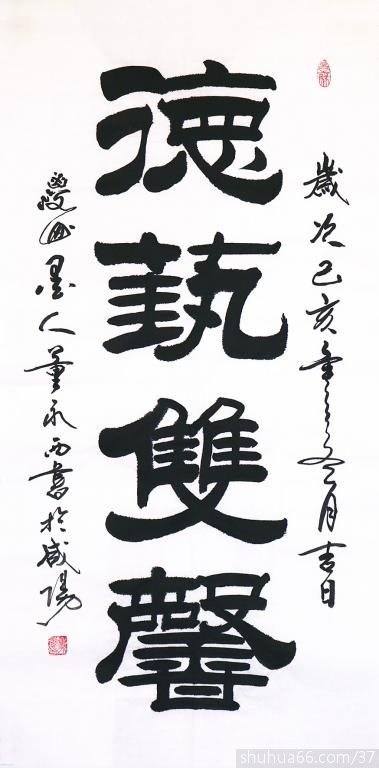 歲次己亥年之月吉日
德
藝
雙
馨
山墨人董永西書於咸陽
shuhua66.com/37